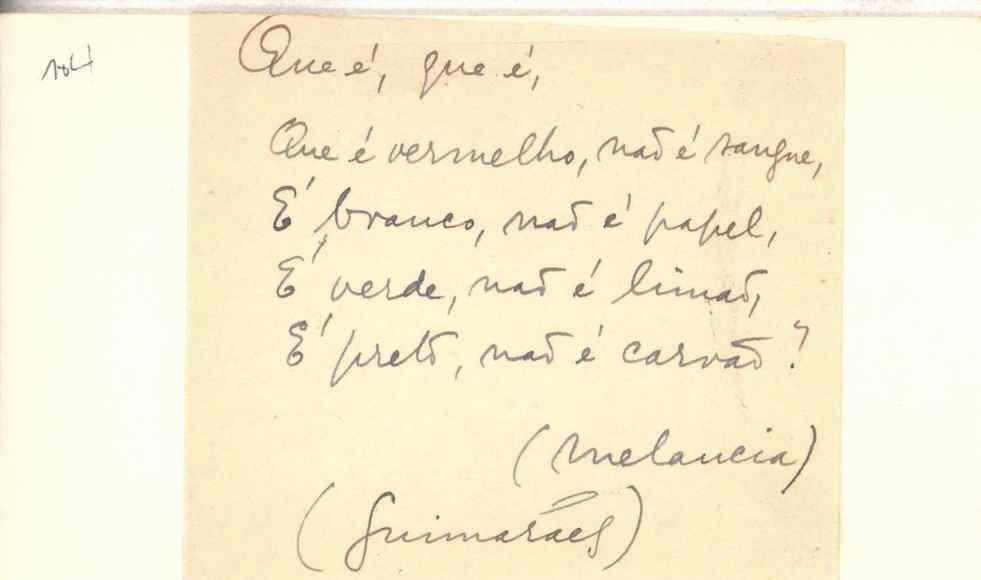 104
Que é, que é,
Que é vermelho, não é sangue,
É branco, não é papel,
É verde, não é limão,
É preto, não é carvão?
(Melancia)
(Guimarães)